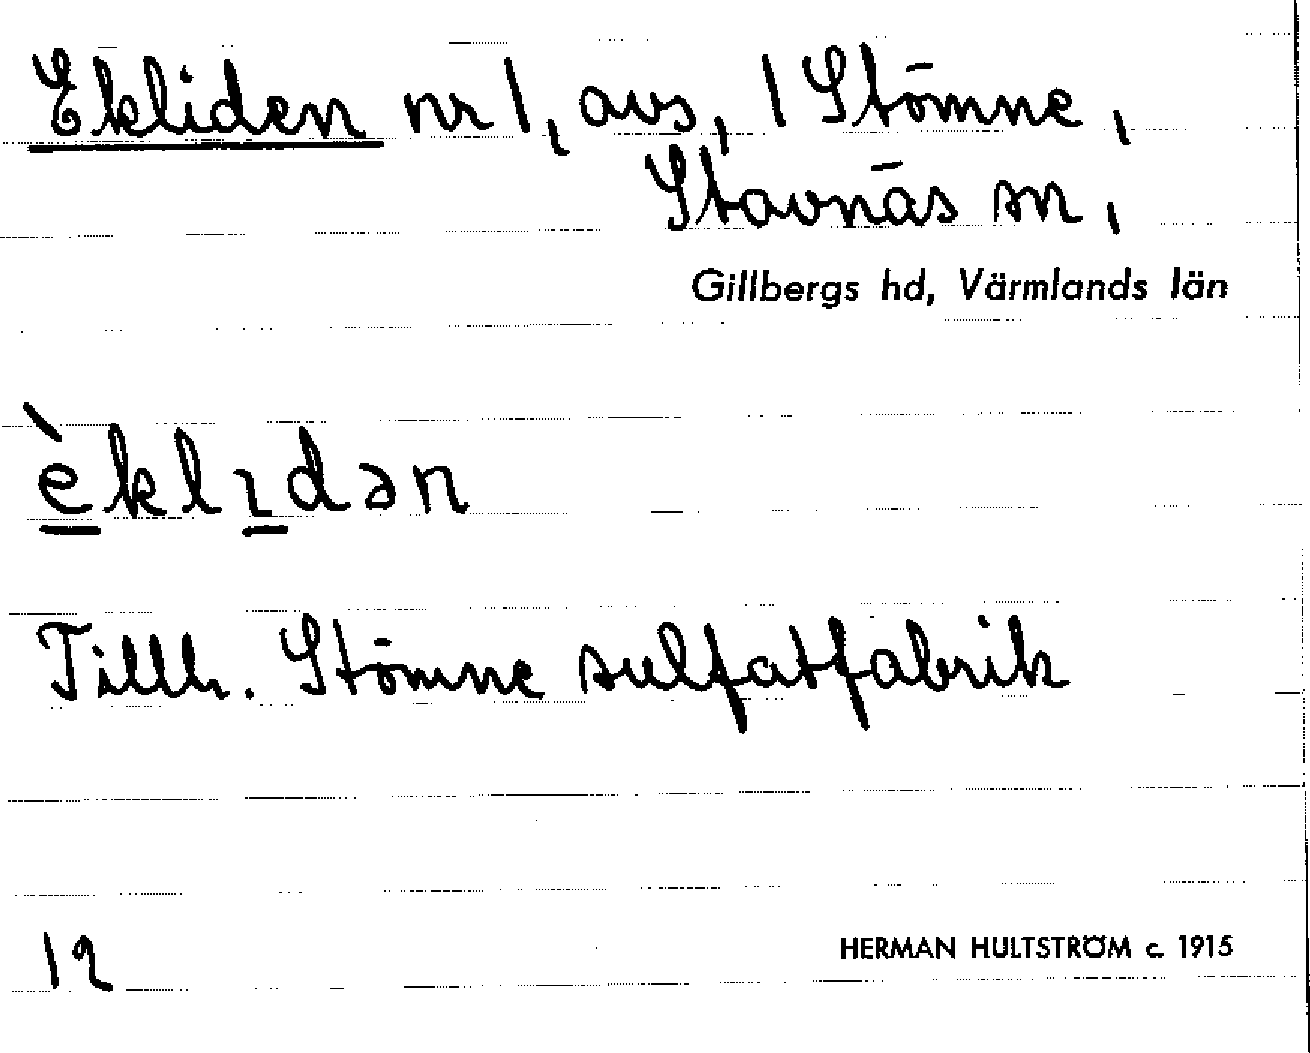 Ekliden nr 1, avs, 1 Stömne,
Stavnäs sn,
Gillbergs hd, Värmlands län
èklɩdən
Tillh. Stömne sulfatfabrik
12
HERMAN HULTSTRÖM c. 1915